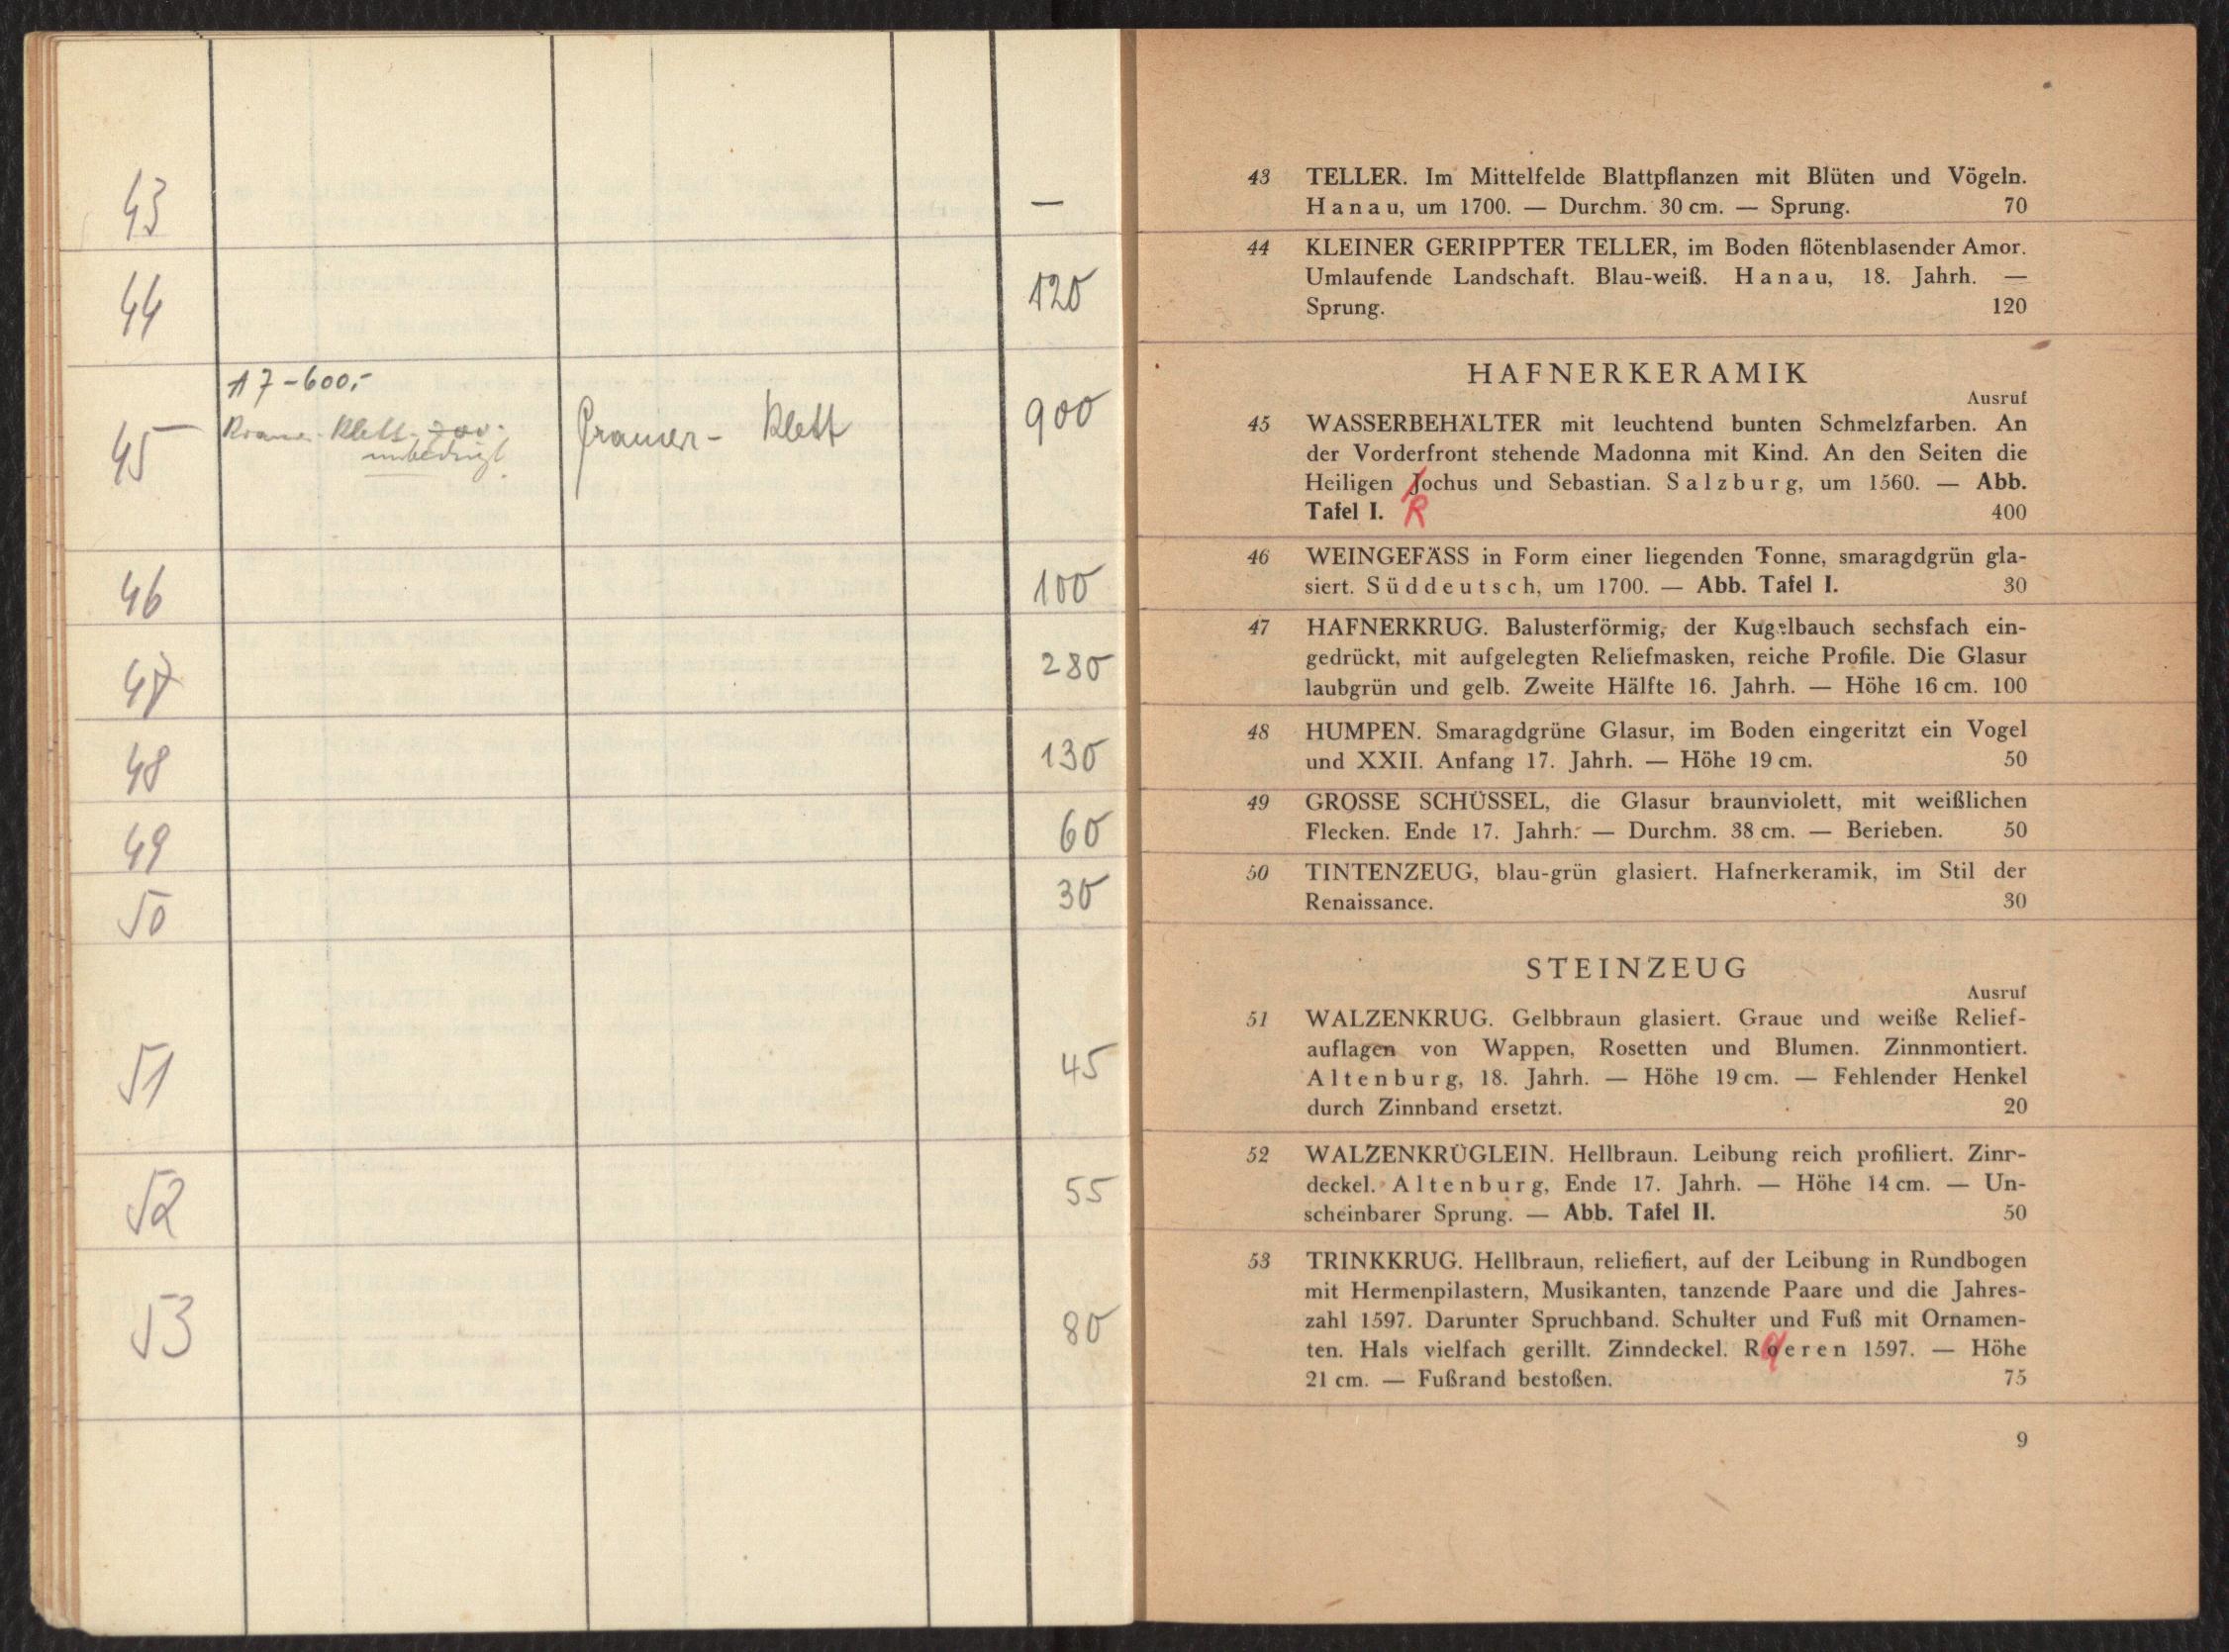 43 —
44 120
A 7 - 600,-
45 Kramer-Klett 700.- Cramer-Klett 900
unbedingt
46 100
47 280
48 130
49 60
50 30
51 45
52 55
53 80
43 TELLER. Im Mittelfelde Blattpflanzen mit Blüten und Vögeln.
Hanau, um 1700. — Durchm. 30 cm. — Sprung. 70
44 KLEINER GERIPPTER TELLER, im Boden flötenblasender Amor.
Umlaufende Landschaft. Blau-weiß. Hanau, 18. Jahrh. —
Sprung. 120
HAFNERKERAMIK
Ausruf
45 WASSERBEHÄLTER mit leuchtend bunten Schmelzfarben. An
der Vorderfront stehende Madonna mit Kind. An den Seiten die
Heiligen Jochus und Sebastian. Salzburg, um 1560. — Abb.
Tafel I. R 400
46 WEINGEFÄSS in Form einer liegenden Tonne, smaragdgrün gla-
siert. Süddeutsch, um 1700. — Abb. Tafel I. 30
47 HAFNERKRUG. Balusterförmig, der Kugelbauch sechsfach ein-
gedrückt, mit aufgelegten Reliefmasken, reiche Profile. Die Glasur
laubgrün und gelb. Zweite Hälfte 16. Jahrh. — Höhe 16 cm. 100
48 HUMPEN. Smaragdgrüne Glasur, im Boden eingeritzt ein Vogel
und XXII. Anfang 17. Jahrh. — Höhe 19 cm. 50
49 GROSSE SCHÜSSEL, die Glasur braunviolett, mit weißlichen
Flecken. Ende 17. Jahrh. — Durchm. 38 cm. — Berieben. 50
50 TINTENZEUG, blau-grün glasiert. Hafnerkeramik, im Stil der
Renaissance. 30
STEINZEUG
Ausruf
51 WALZENKRUG. Gelbbraun glasiert. Graue und weiße Relief-
auflagen von Wappen, Rosetten und Blumen. Zinnmontiert.
Altenburg, 18. Jahrh. — Höhe 19 cm. — Fehlender Henkel
durch Zinnband ersetzt. 20
52 WALZENKRÜGLEIN. Hellbraun. Leibung reich profiliert. Zinn-
deckel. Altenburg, Ende 17. Jahrh. — Höhe 14 cm. — Un-
scheinbarer Sprung. — Abb. Tafel II. 50
53 TRINKKRUG. Hellbraun, reliefiert, auf der Leibung in Rundbogen
mit Hermenpilastern, Musikanten, tanzende Paare und die Jahres-
zahl 1597. Darunter Spruchband. Schulter und Fuß mit Ornamen-
ten. Hals vielfach gerillt. Zinndeckel. Raeren 1597. — Höhe
21 cm. — Fußrand bestoßen. 75
9